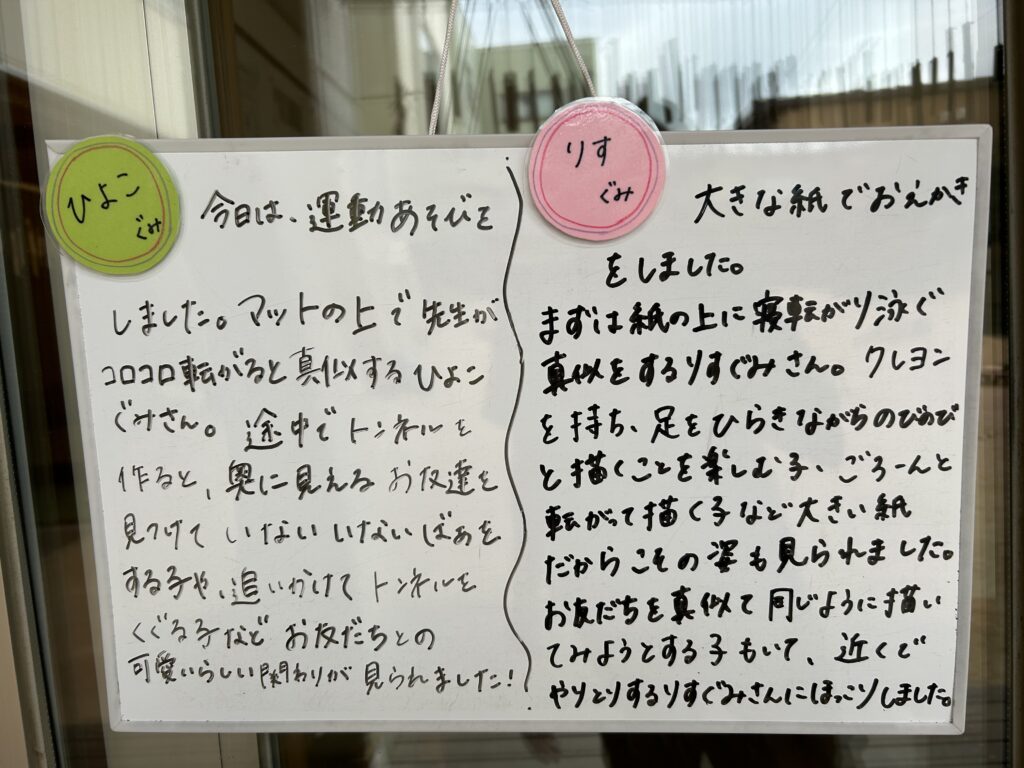 ひよこ
ぐみ
今日は、運動あそびを
しました。マットの上で先生が
コロコロ転がると真似するひよこ
ぐみさん。途中でトンネルを
作ると、奥に見えるお友達を
見つけていないいないばぁを
する子や、追いかけてトンネルを
くぐる子などお友だちとの
可愛いらしい関わりが見られました!
りす
ぐみ
大きな紙でおえかき
をしました。
まずは紙の上に寝転がり泳ぐ
真似をするりすぐみさん。クレヨン
を持ち、足をひらきながらのびのび
と描くことを楽しむ子、ごろーんと
転がって描く子など大きい紙
だからこその姿も見られました。
お友だちを真似て同じように描い
てみようとする子もいて、近くで
やりとりするりすぐみさんにほっこりしました。